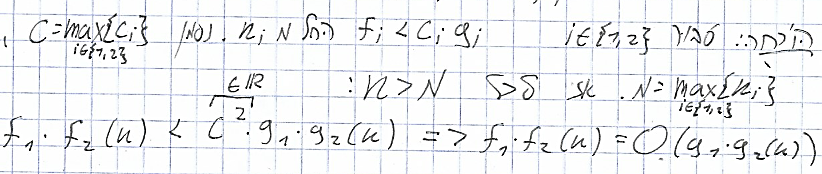 הוכחה: עבור i∈{1,2} f_i < c_i g_i החל מ n_i. נסמן C = max_{i∈{1,2}}{c_i},
N = max_{i∈{1,2}}{n_i}. אז לכל n > N:
f_1·f_2(n) < C^2·g_1·g_2(n) => f_1·f_2(n) = O(g_1·g_2(n)) ∈ℝ